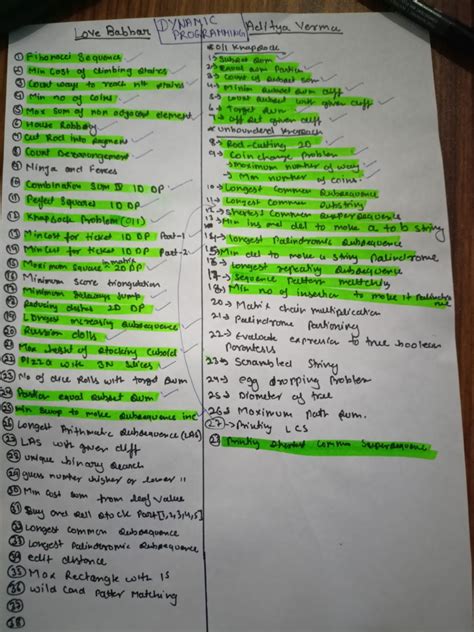 Love Babbar
DYNAMIC
PROGRAMMING
Aditya Verma
1 Fibonacci Sequence
2 Min Cost of Climbing Stairs
3 Count ways to reach nth stairs
4 Min no of coins
5 Max Sum of non adjacent element
6 House Robbery
7 Cut Rod into segment
8 Count Derrangement
9 Ninja and Fences
10 Combination Sum IV 1D DP
11 Perfect Squares 1D DP
12 Knapsack Problem (0/1)
13 Min Cost for ticket 1D DP Part-1
14 Min Cost for ticket 1D DP Part-2
15 Maximum Square in matrix 2D DP
16 Minimum Score triangulation
17 Minimum Sideways Jump
18 Reducing dishes 2D DP
19 Longest increasing Subsequence
20 Russian dolls
21 Max height of Stacking Cuboid
22 Pizza with 3N Slices
23 No of dice Rolls with target Sum
24 Partion equal Subset Sum
25 Min Swap to make Subsequence inc
26 Longest Arithmatic Subsequence (LAS)
27 LAS with given diff
28 unique binary search
29 guess number higher or lower II
30 Min cost sum from leaf value
31 Buy and Sell Stock Part [1,2,3,4,5]
32 Longest Common Subsequence
33 Longest Palindromic Subsequence
34 edit distance
35 Max Rectangle with 1S
36 Wild Card Patter Matching
37
38
0/1 Knapsack
1→ Subset Sum
2→ Equal Sum Partion
3→ Count of Subset Sum
4→ Minimum Subset Sum diff
5→ Count Subset with given diff
6→ Target Sum
7→
unbounded Knapsack
8→ Rod-Cutting 2D
9→ Coin change Problem
→ Maximum number of way
→ Min number of coins
10→ Longest Common Subsequence
11→ Longest Common Substring
12→ Shortest Common Supersequence
13→ Min ins del to make a to b String
14→ Longest Palindromic Subsequence
15→ Min del to make a String Palindrome
16→ Longest repeating Subsequence
17→ Sequence Pattern Matching
18→ Min no of insertion to make it Palindrome
20→ Matrix chain multiplication
21→ Palindrome Partioning
22→ Evaluate expression to true boolean
23→ Scrambled String
24→ egg dropping Problem
25→ Diameter of tree
26→ Maximum Path Sum.
27→ Printing LCS
28 Printing Shortest Common Supersequence